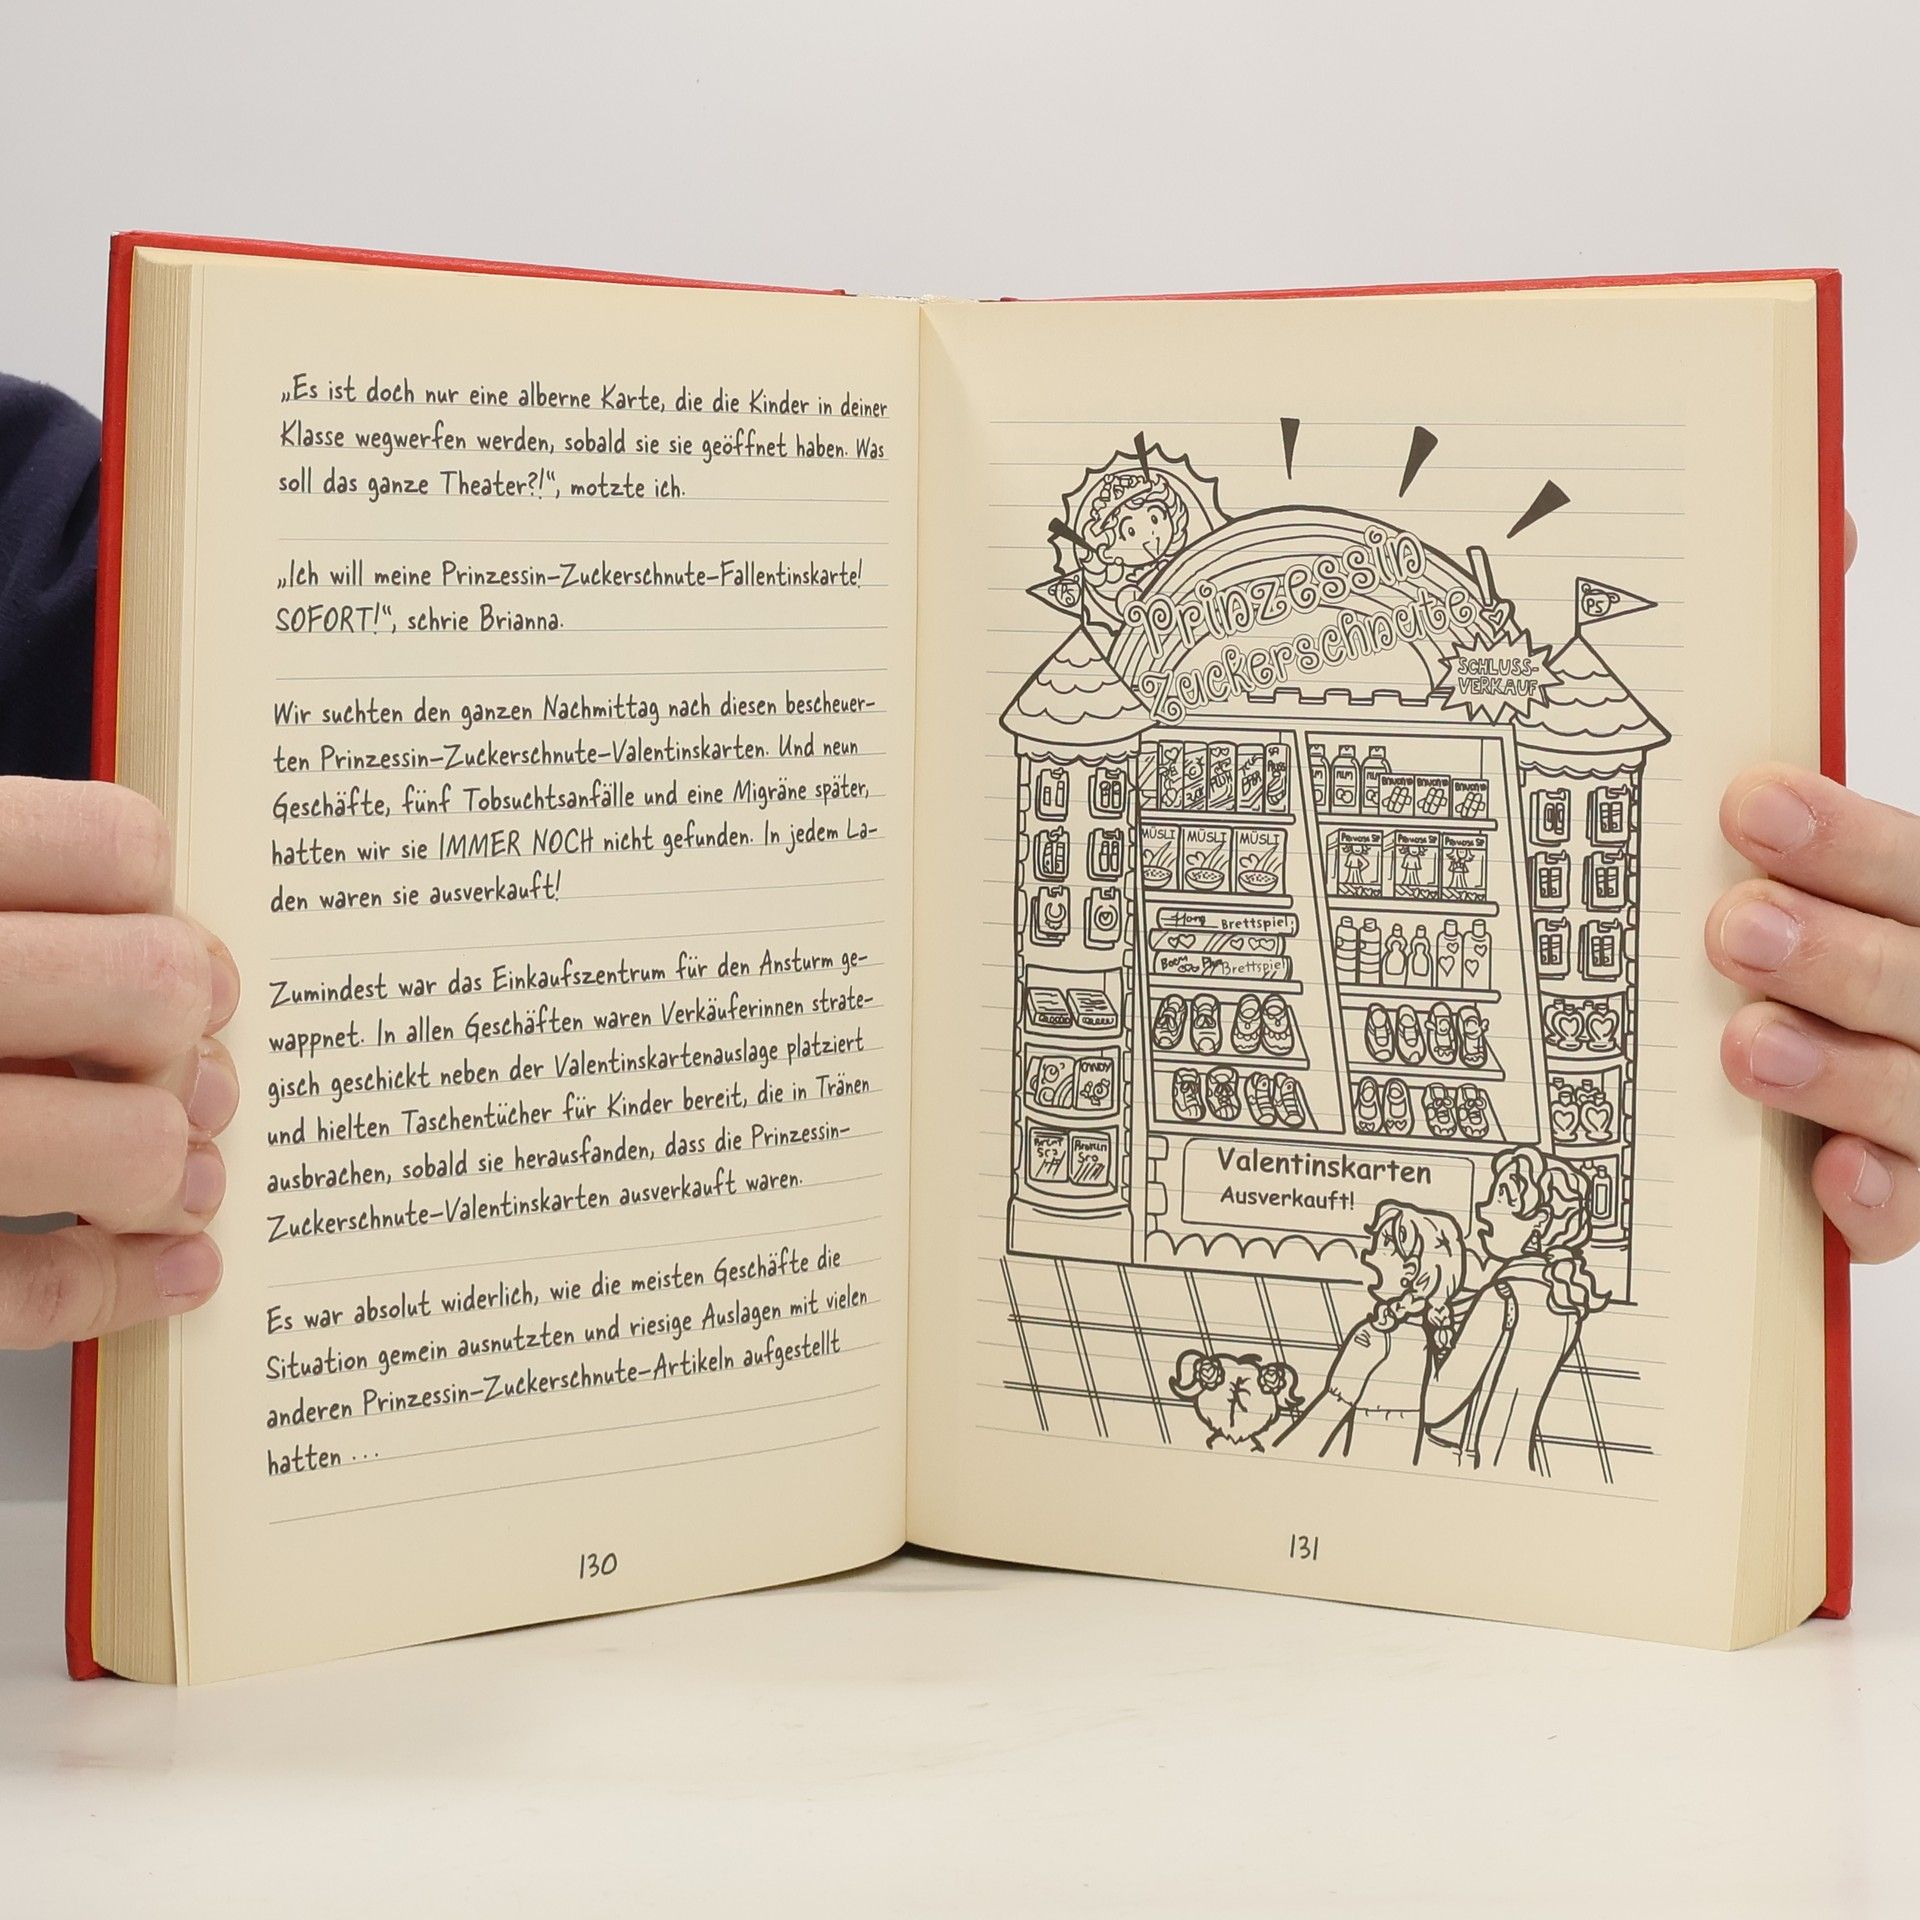 „Es ist doch nur eine alberne Karte, die die Kinder in deiner
Klasse wegwerfen werden, sobald sie sie geöffnet haben. Was
soll das ganze Theater?!“, motzte ich.
„Ich will meine Prinzessin-Zuckerschnute-Fallentinskarte!
SOFORT!“, schrie Brianna.
Wir suchten den ganzen Nachmittag nach diesen bescheuer-
ten Prinzessin-Zuckerschnute-Valentinskarten. Und neun
Geschäfte, fünf Tobsuchtsanfälle und eine Migräne später,
hatten wir sie IMMER NOCH nicht gefunden. In jedem La-
den waren sie ausverkauft!
Zumindest war das Einkaufszentrum für den Ansturm ge-
wappnet. In allen Geschäften waren Verkäuferinnen strate-
gisch geschickt neben der Valentinskartenauslage platziert
und hielten Taschentücher für Kinder bereit, die in Tränen
ausbrachen, sobald sie herausfanden, dass die Prinzessin-
Zuckerschnute-Valentinskarten ausverkauft waren.
Es war absolut widerlich, wie die meisten Geschäfte die
Situation gemein ausnutzten und riesige Auslagen mit vielen
anderen Prinzessin-Zuckerschnute-Artikeln aufgestellt
hatten ...
130
Prinzessin
Zuckerschnute
PS
PS
SCHLUSS-
VERKAUF
MÜSLI MÜSLI MÜSLI
Brettspiel
Brettspiel
Valentinskarten
Ausverkauft!
131